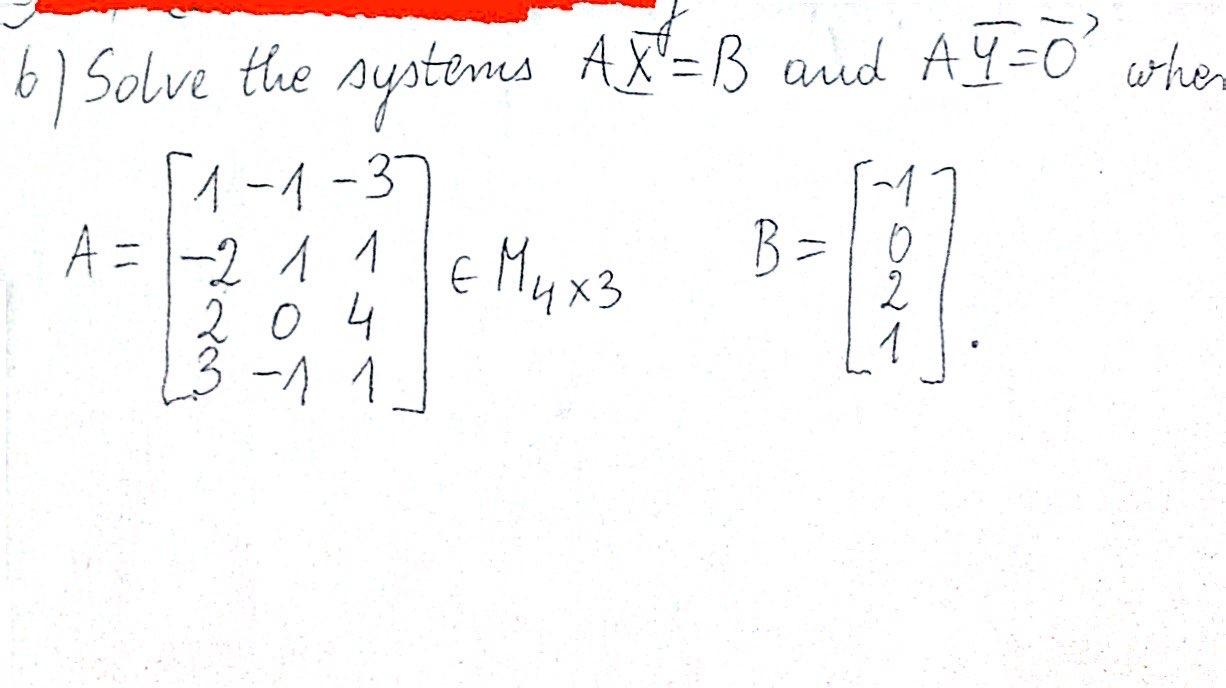 b) Solve the systems AX=B and AY=O when
A = [1 -1 -3
-2 1 1
2 0 4
3 -1 1] ∈ M4×3
B = [-1
0
2
1].